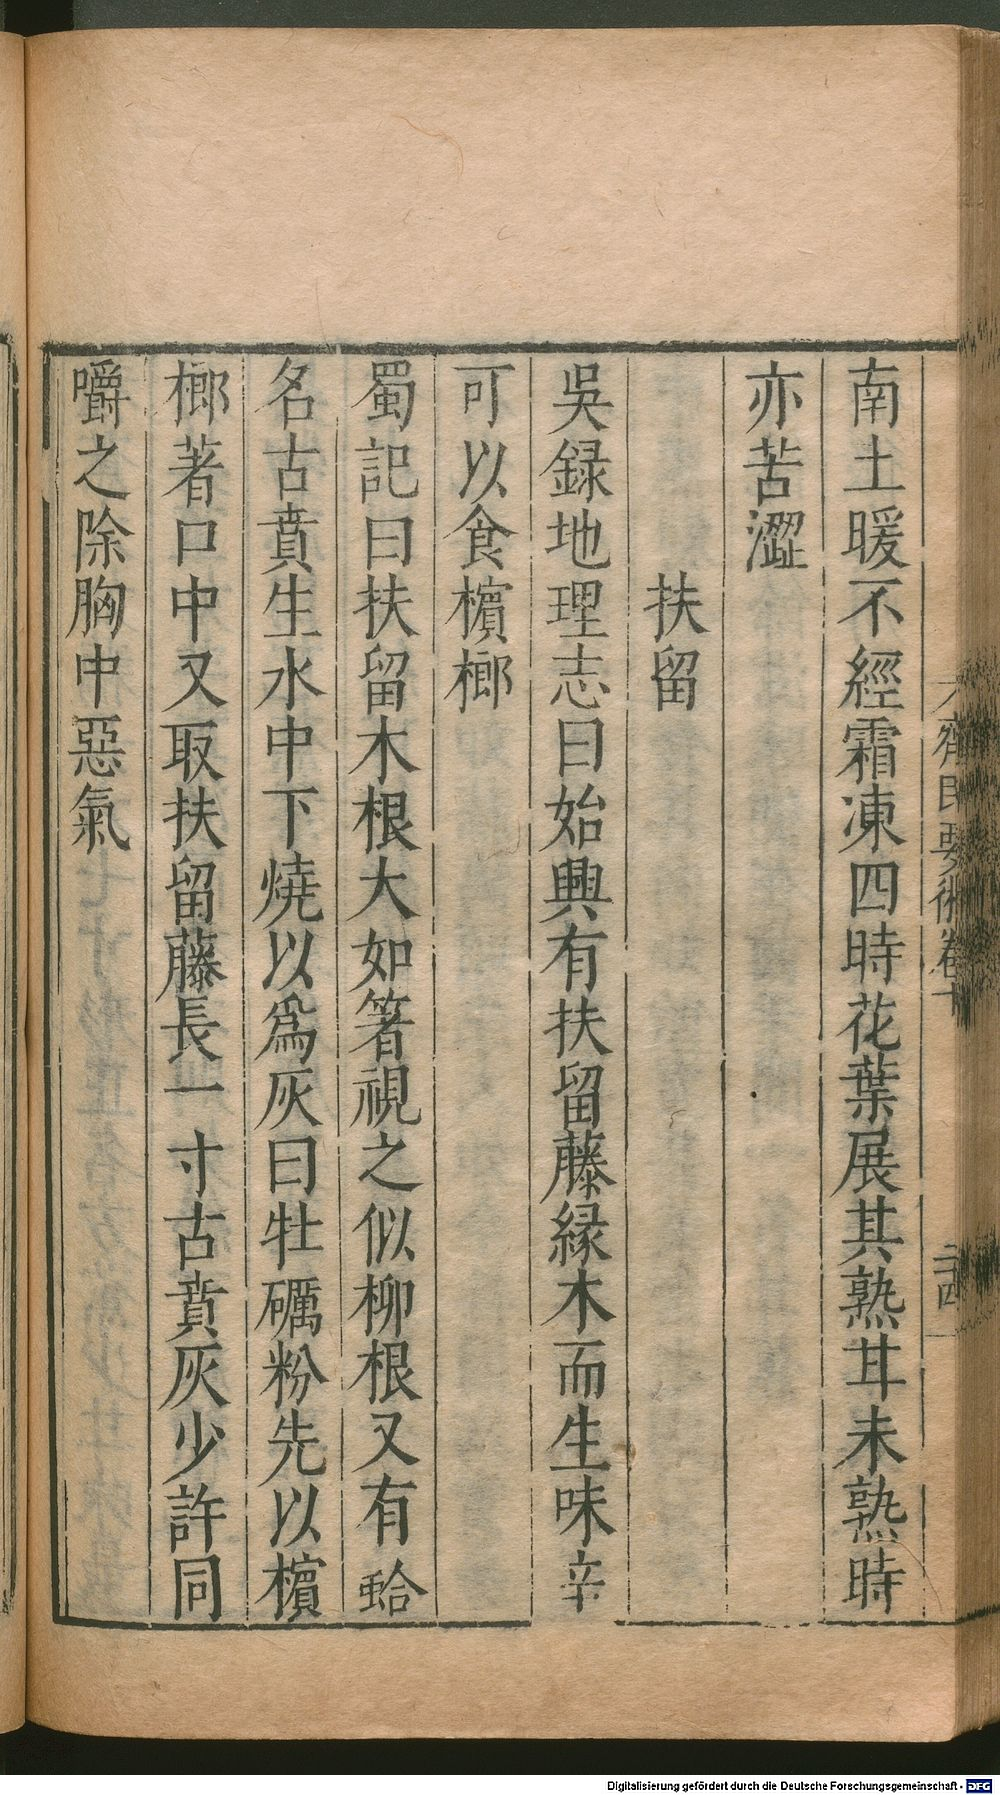 南土暖不經霜凍四時花葉展其熟甘未熟時
亦苦澀
扶留
吳録地理志曰始興有扶留藤緣木而生味辛
可以食檳榔
蜀記曰扶留木根大如箸視之似柳根又有蛤
名古賁生水中下燒以爲灰曰牡礪粉先以檳
榔著口中又取扶留藤長一寸古賁灰少許同
嚼之除胸中惡氣
齊民要術卷十
二十四
Digitalisierung gefördert durch die Deutsche Forschungsgemeinschaft - DFG